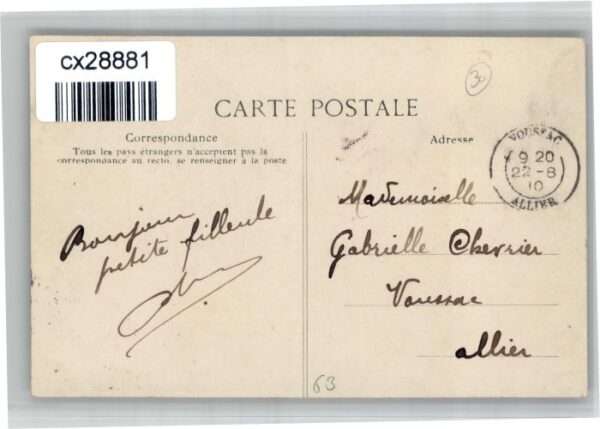 cx28881
30
CARTE POSTALE
Correspondance
Tous les pays étrangers n'acceptent pas la
correspondance au recto, se renseigner à la poste
Adresse
VOUSSAC
9 20
22-8
10
ALLIER
Bonjour
petite filleule
Mademoiselle
Gabrielle Chevrier
Voussac
allier
63